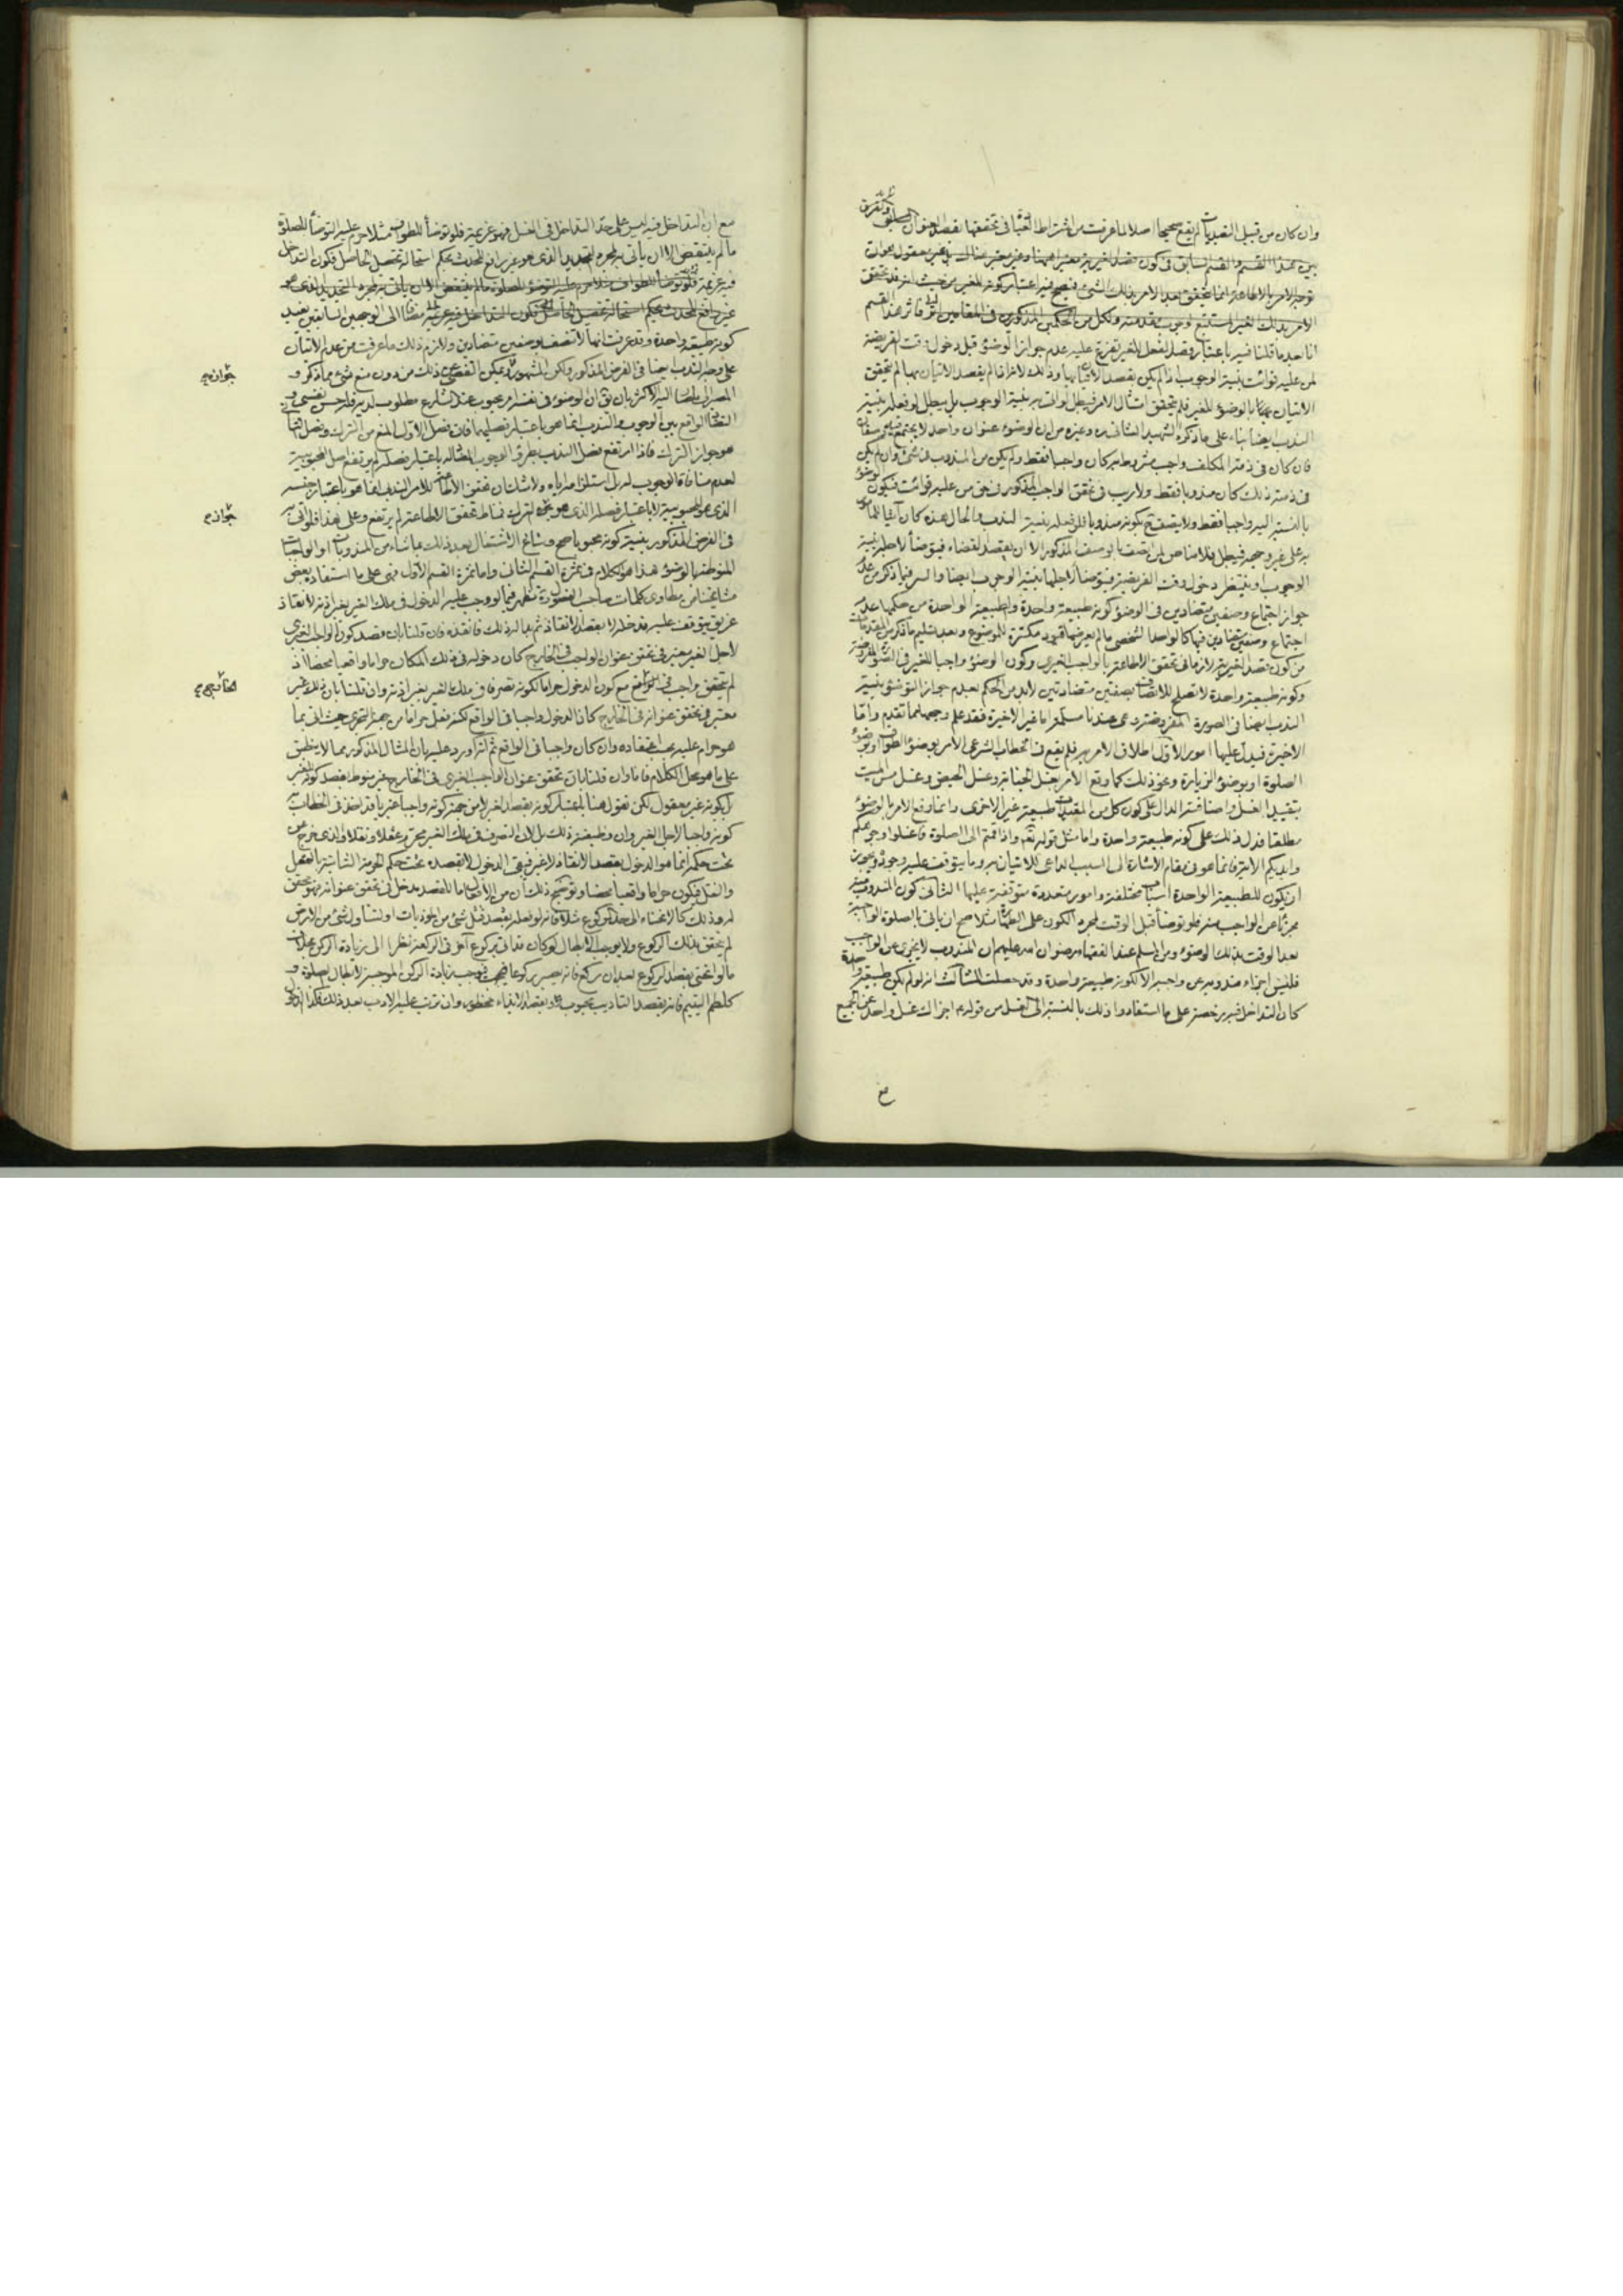 وان كان من قبيل التعبديات لم يقع صحيحا اصلا لما عرفت من اشتراط التعبد فى تحققها بقصد العنوان
بين هذا القسم والقسم السابق فى كون قصد الغيرية معتبرا هنا وغير معتبر هناك
توجه الامر بالاطاعة انما يتحقق بعد الامر بذلك الشئ فيصح فيه اعتبار كونه للغير من حيث انه قد تحقق
الامر بذلك الغير المستتبع لوجوب مقدمته ولكل من الحكمين المذكورين فى المقامين
انا بعد ما قلنا فيه باعتبار قصد الفعل للغير تفرع عليه عدم جواز الوضوء قبل دخول وقت الفريضة
لمن عليه فوائت بنية الوجوب اذا لم يكن بقصد الاتيان بها وذلك لانه اذا لم يقصد الاتيان بها لم يتحقق
الاتيان بالوضوء للغير فلم يتحقق امتثال الامر فيبطل لو اتى به بنية الوجوب بل يبطل لو فعله بنية
الندب ايضا بناء على ما ذكره الشهيد الثانى ره وغيره من ان الوضوء عنوان واحد لا يجتمع فيه وصفان
فان كان فى ذمة المكلف واجب مشروط به كان واجبا فقط ولم يكن من المندوب فى شئ وان لم يكن
فى ذمته ذلك كان مندوبا فقط ولا ريب فى تحقق الواجب المذكور فى حق من عليه فوائت فيكون الوضوء
بالنسبة اليه واجبا فقط ولا يتصف بكونه مندوبا فلو فعله بنية الندب والحال هذه كان آتيا بالمأمور
به على غير وجهه فيبطل فلا مناص لمن اتصف بالوصف المذكور الا ان يقصد القضاء فيتوضأ لاجله بنية
الوجوب او ينتظر دخول وقت الفريضة فيتوضأ لاجلها بنية الوجوب ايضا والسر فيما ذكر من عدم
جواز اجتماع وصفين متضادين فى الوضوء كونه طبيعة واحدة والطبيعة الواحدة من حكمها عدم
اجتماع وصفين متضادين فيها كالواحد الشخصى ما لم يعرضها قيود مكثرة للموضوع وبعد تسليم ما ذكر من المقدمات
من كون قصد الغيرية لازما فى تحقق الاطاعة بالواجب الغيرى وكون الوضوء واجبا للغير فى الصورة المفروضة
وكونه طبيعة واحدة لا تصلح للاتصاف بصفتين متضادتين لا بد من الحكم بعدم جواز التوضئ بنية
الندب ايضا فى الصورة المفروضة وهى عندنا مسلمة اما غير الاخيرة فقد علم وجهها مما تقدم واما
الاخيرة فيدل عليها امور الاول اطلاق الامر به فلم يقع فى الخطاب الشرعى الامر بوضوء الطواف او بوضوء
الصلوة او بوضوء الزيارة ونحو ذلك كما وقع الامر بغسل الجنابة وغسل الحيض وغسل مس الميت
بتقييد الغسل واضافته الدال على كون كل من المقيدات طبيعة غير الاخرى وانما وقع الامر بالوضوء
مطلقا فدل ذلك على كونه طبيعة واحدة واما مثل قوله تعالى واذا قمتم الى الصلوة فاغسلوا وجوهكم
وايديكم الاية فانما هو فى مقام الاشارة الى السبب الداعى للاتيان به وما يتوقف عليه وجوده ويجوز
ان يكون للطبيعة الواحدة اسباب مختلفة وامور متعددة متوقفة عليها الثانى كون المندوب منه
مجزيا عن الواجب منه فلو توضأ قبل الوقت لمجرد الكون على الطهارة مثلا صح ان ياتى بالصلوة الواجبة
بعد الوقت بذلك الوضوء ومن المسلم عند الفقهاء رضوان الله عليهم ان المندوب لا يجزى عن الواجب
فليس اجزاء مندوبه عن واجبه الا لكونه طبيعة واحدة وقد حصلت الثالث انه لو لم يكن طبيعة واحدة
كان التداخل فيه رخصة على ما استفادوا ذلك بالنسبة الى الغسل من قوله ع اجزاك غسل واحد عن الجميع
مع
مع ان التداخل فيه ليس على حد التداخل فى الغسل فهو عزيمة فلو توضأ للطواف مثلا حرم عليه التوضأ للصلوة
ما لم ينتقض الا ان يأتى به لمجرد التجديد الذى هو غير رافع للحدث بحكم استحالة تحصيل الحاصل فكون التداخل
فيه عزيمة
كونه طبيعة واحدة وقد عرفت انها لا تتصف بوصفين متضادين ولازم ذلك ما عرفت من عدم الاتيان
على وجه الندب ايضا فى الفرض المذكور ولكن المشهور ويمكن التفصى عن ذلك من دون منع شئ مما ذكر و
المصير الى ما صار اليه الاكثر بان يق ان الوضوء فى نفسه امر محبوب عند الشارع مطلوب لديه فله حسن نفسى و
التضاد الواقع بين الوجوب والندب انما هو باعتبار فصليهما فان فصل الاول المنع من الترك وفصل الثانى
هو جواز الترك فاذا ارتفع فصل الندب بطرو الوجوب المضاد له باعتبار فصله لم يرتفع اصل المحبوبية
لعدم منافاة الوجوب له بل استلزامه اياه ولا شك ان تحقق الاطاعة للامر الندبى انما هو باعتبار جنسه
الذى هو المحبوبية لا باعتبار فصله الذى هو جواز الترك فمناط تحقق الاطاعة لم يرتفع وعلى هذا فلو اتى به
فى الفرض المذكور بنية كونه محبوبا صح وساغ الاشتغال بعد ذلك بما شاء من المندوبات او الواجبات
المنوطة بالوضوء هذا هو الكلام فى ثمرة القسم الثانى واما ثمرة القسم الاول فهى على ما استفاده بعض
مشايخنا من مطاوى كلمات صاحب الفصول ره تظهر فيما لو وجب عليه الدخول فى ملك الغير بغير اذنه لانقاذ
غريق يتوقف عليه فدخله لا بقصد الانقاذ ثم بدا له ذلك فانقذه فان قلنا بان قصد كون الواجب الغيرى
لاجل الغير معتبر فى تحقق عنوان الواجب فى الخارج كان دخوله فى ذلك المكان حراما واقعيا محضا اذ
لم يتحقق واجب فى الواقع مع كون الدخول حراما لكونه تصرفا فى ملك الغير بغير اذنه وان قلنا بان ذلك غير
معتبر فى تحقق عنوانه فى الخارج كان الدخول واجبا فى الواقع لكنه فعل حراما من جهة التجرى حيث اتى بما
هو حرام عليه بحسب اعتقاده وان كان واجبا فى الواقع ثم انه اورد عليه بان المثال المذكور مما لا ينطبق
على ما هو محل الكلام فانا وان قلنا بان تحقق عنوان الواجب الغيرى فى الخارج غير منوط بقصد كونه للغير
بل كونه غير معقول لكن نقول هنا باعتبار كونه بقصد الغير لا من جهة كونه واجبا غيريا
كونه واجبا لاجل الغير وان وظيفته ذلك بل لان التصرف فى ملك الغير محرم عقلا ونقلا والذى خرج من
تحت حكمه انما هو الدخول بقصد الانقاذ لا غير فيبقى الدخول لا بقصده تحت حكم الحرمة الثابتة بالعقل
والنقل فيكون حراما واقعيا محضا وتوضيح ذلك ان من الافعال ما للقصد مدخل فى تحقق عنوانه
له وذلك كالانحناء الى حد الركوع مثلا فانه لو فعله بقصد قتل شئ من الموذيات او لتناول شئ من الارض
لم يتحقق بذلك الركوع ولا يوجب الابطال لو كان قد اتى بركوع آخر فى الركعة نظرا الى زيادة الركوع بخلاف
ما لو انحنى بقصد الركوع بعد ان ركع فانه يصير ركوعا فيوجب زيادة الركن الموجبة لابطال الصلوة و
كلطم اليتيم فانه بقصد التاديب محبوب وبقصد الايذاء محظور وان ترتب عليه الادب بعد ذلك